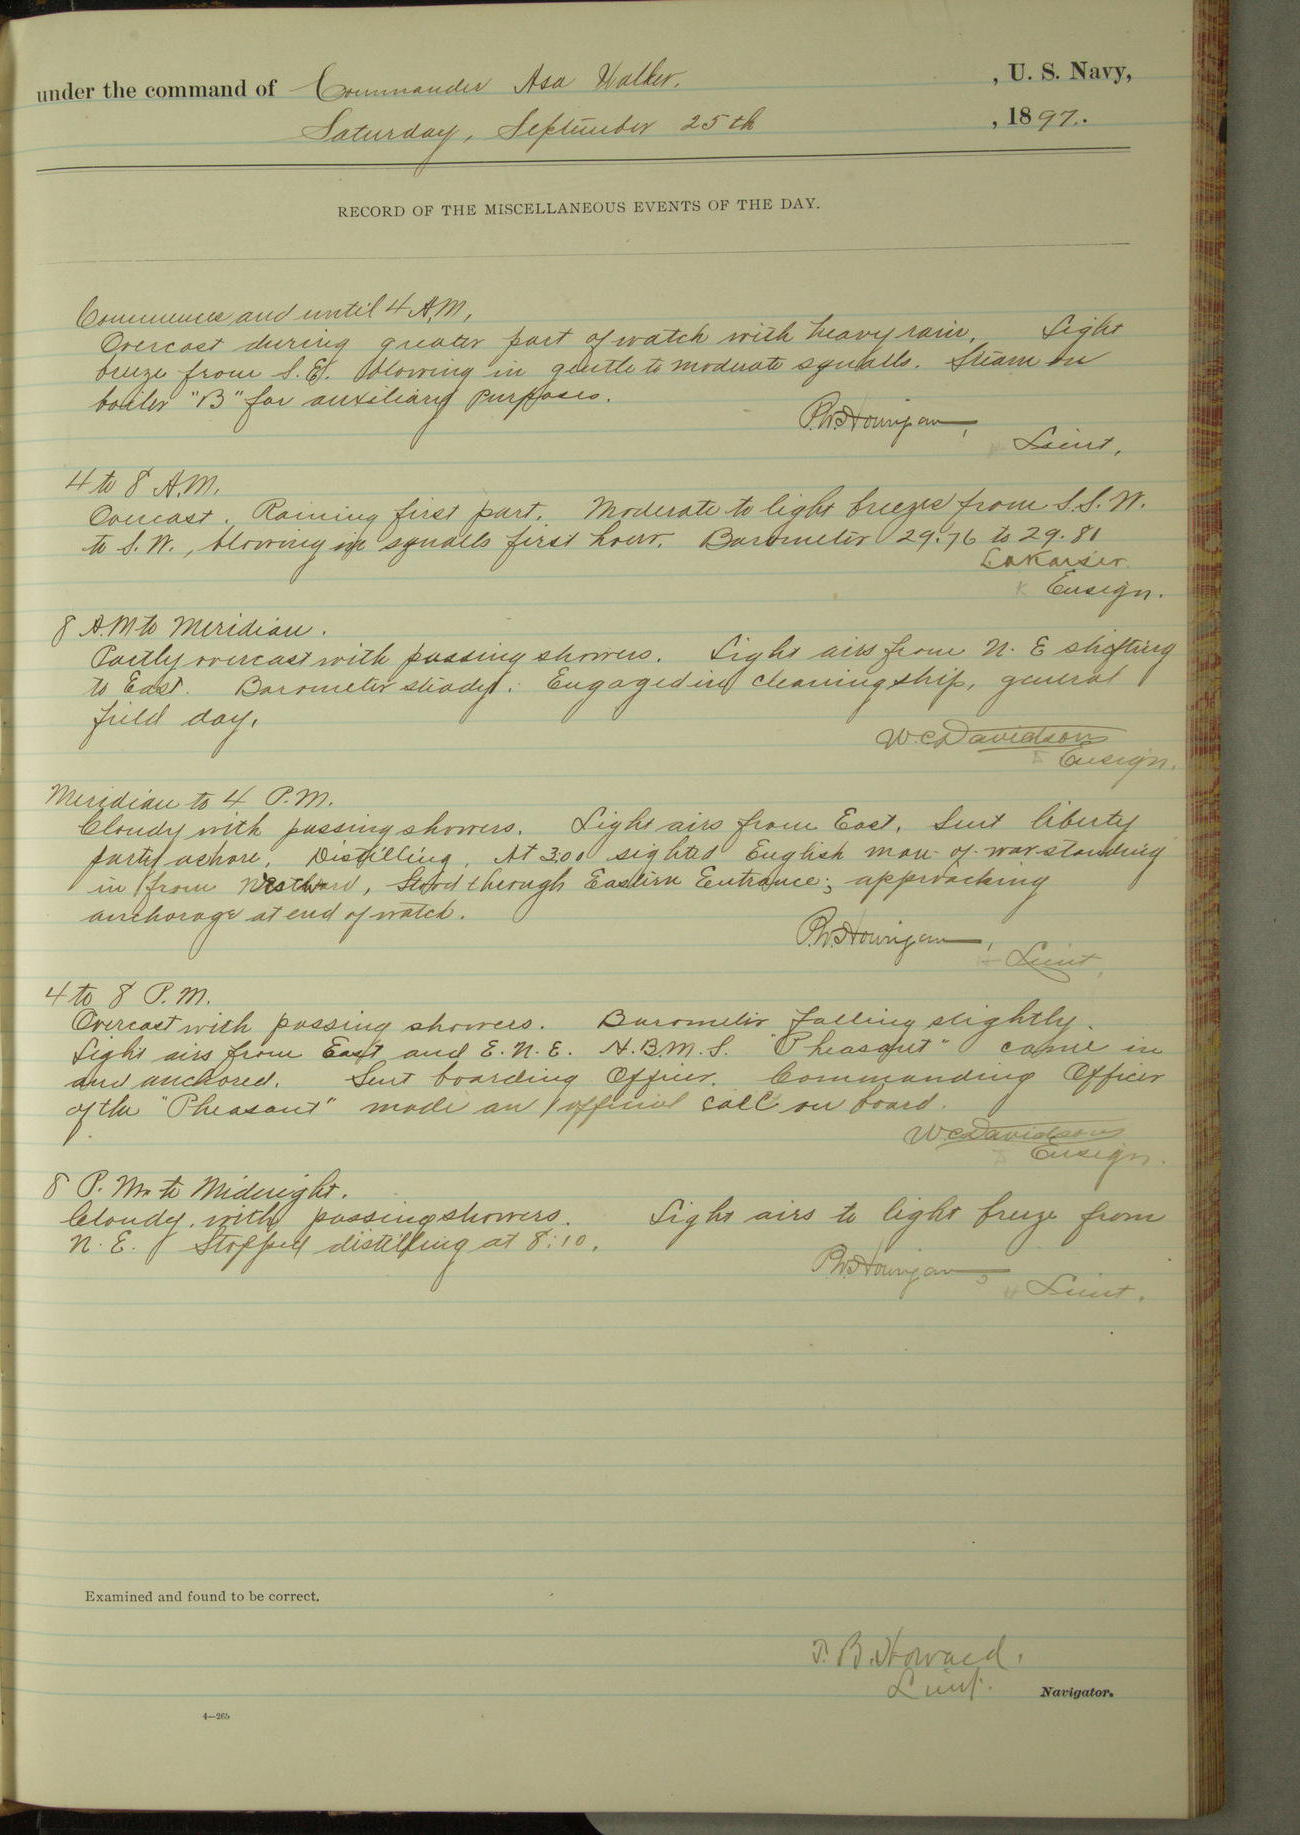 under the command of Commander Asa Walker. , U. S. Navy,
Saturday, September 25th , 1897.
RECORD OF THE MISCELLANEOUS EVENTS OF THE DAY.
Commences and until 4 A.M.
Overcast during greater part of watch with heavy rain. Light
breeze from S.E. blowing in gentle to moderate squalls. Steam on
boiler "B" for auxiliary purposes.
P.W. Hourigan,
Lieut.
4 to 8 A.M.
Overcast. Raining first part. Moderate to light breezes from S.S.W.
to S.W., blowing in squalls first hour. Barometer 29.76 to 29.81
L A Kaiser
Ensign.
8 A.M to Meridian.
Partly overcast with passing showers. Light airs from N. E shifting
to East. Barometer steady. Engaged in cleaning ship, general
field day.
W.C. Davidson
Ensign.
Meridian to 4 P.M.
Cloudy with passing showers. Light airs from East. Sent liberty
party ashore. Distilling. At 3:00 sighted English man-of-war standing
in from Westward, stood through Eastern Entrance; approaching
anchorage at end of watch.
P.W. Hourigan,
Lieut.
4 to 8 P.M.
Overcast with passing showers. Barometer falling slightly.
Light airs from East and E.N.E. H.B.M.S. "Pheasant" came in
and anchored. Sent boarding Officer. Commanding Officer
of the "Pheasant" made an official call on board.
W.C. Davidson
Ensign.
8 P.M. to Midnight.
Cloudy with passing showers. Light airs to light breeze from
N.E. Stopped distilling at 8:10.
P.W. Hourigan,
Lieut.
Examined and found to be correct.
T. B. Howard.
Lieut. Navigator.
4—265